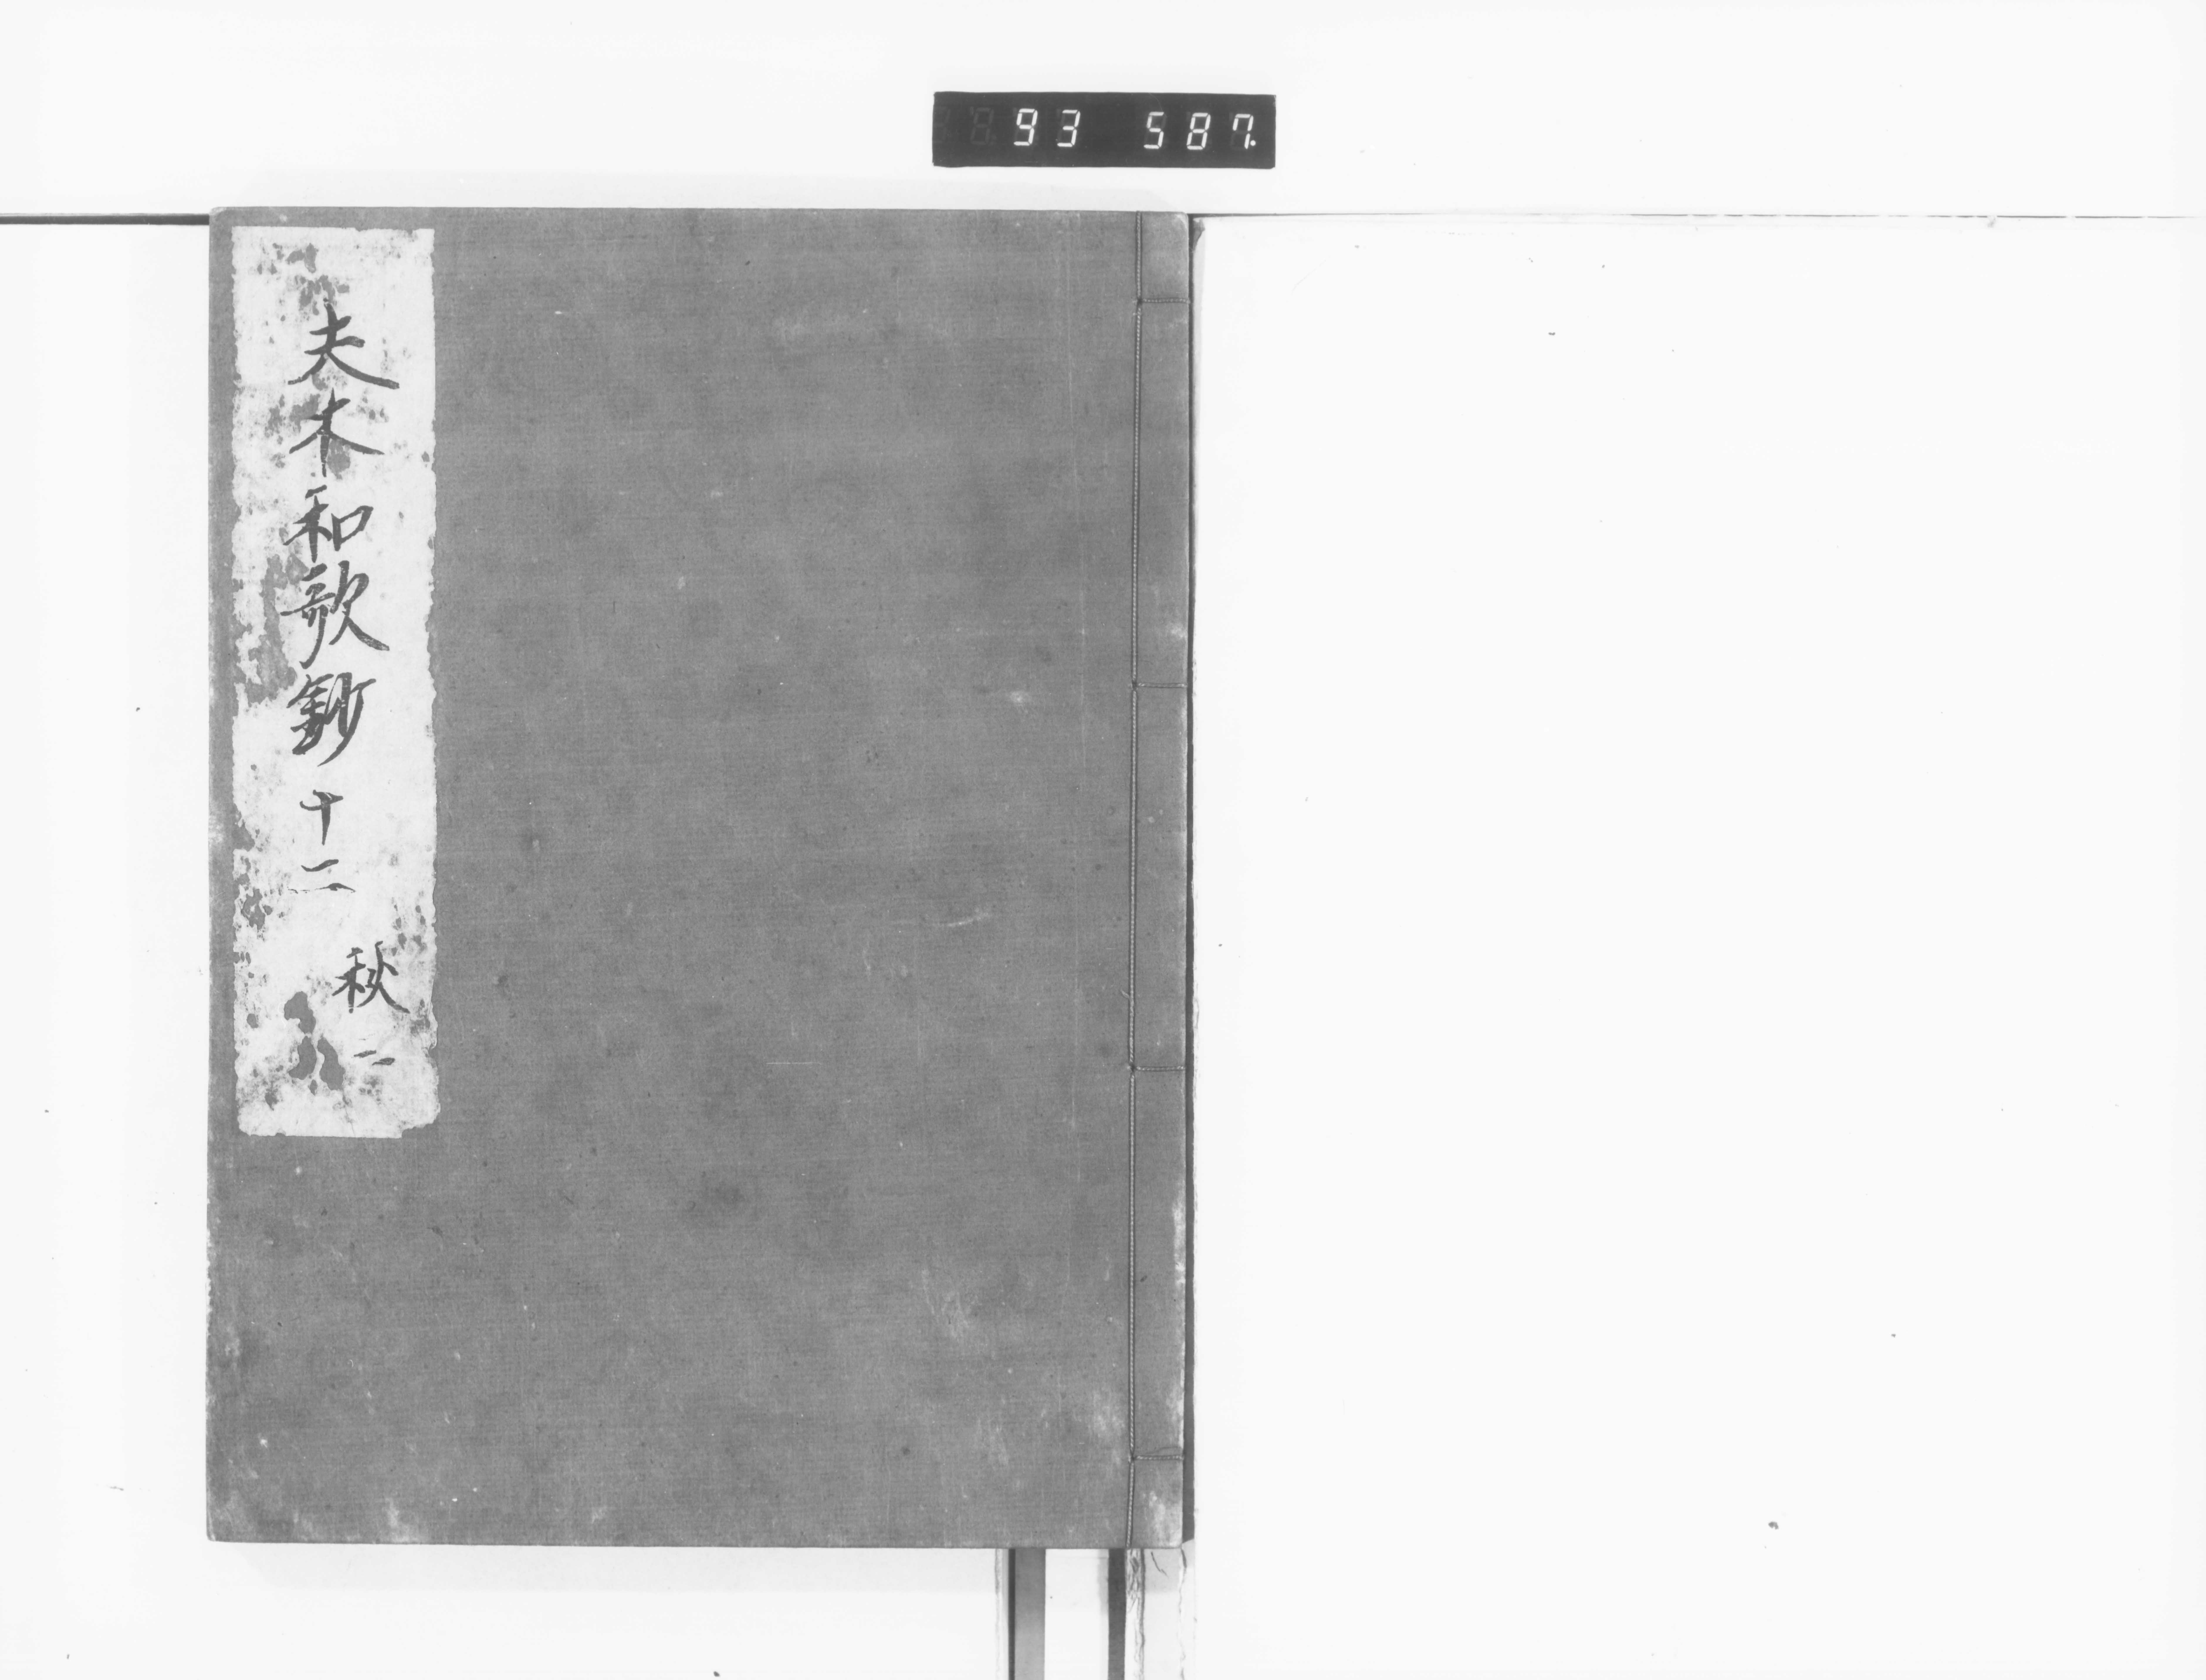 93 587.
夫木和歌鈔 十二
秋二